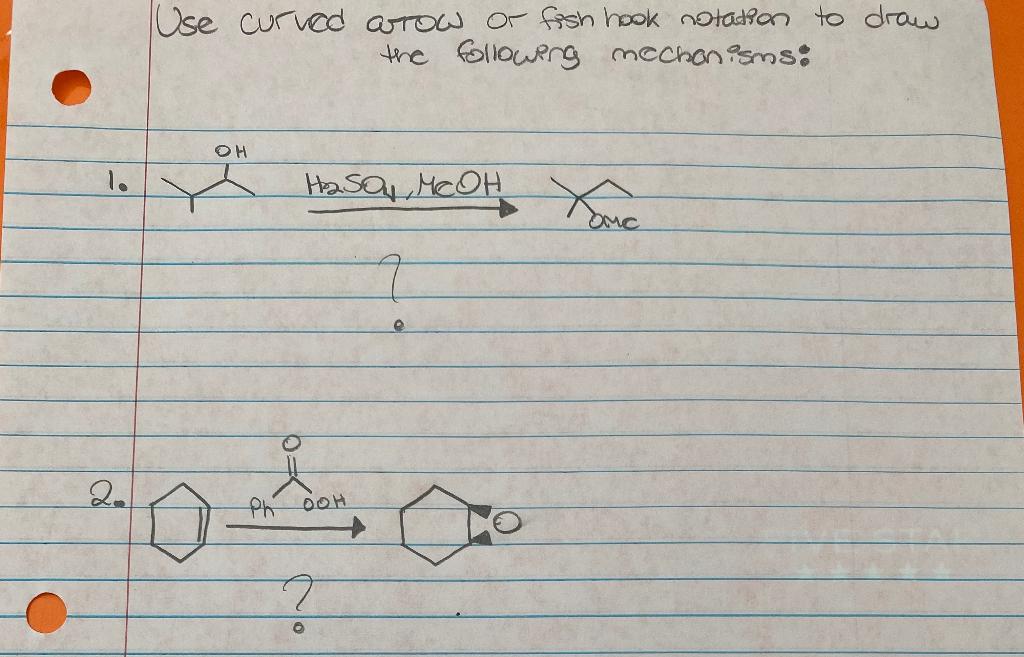 Use curved arrow or fish hook notation to draw
the following mechanisms:
OH
1. H2SO4, MeOH
OMe
?
O
2. Ph OOH
O
?